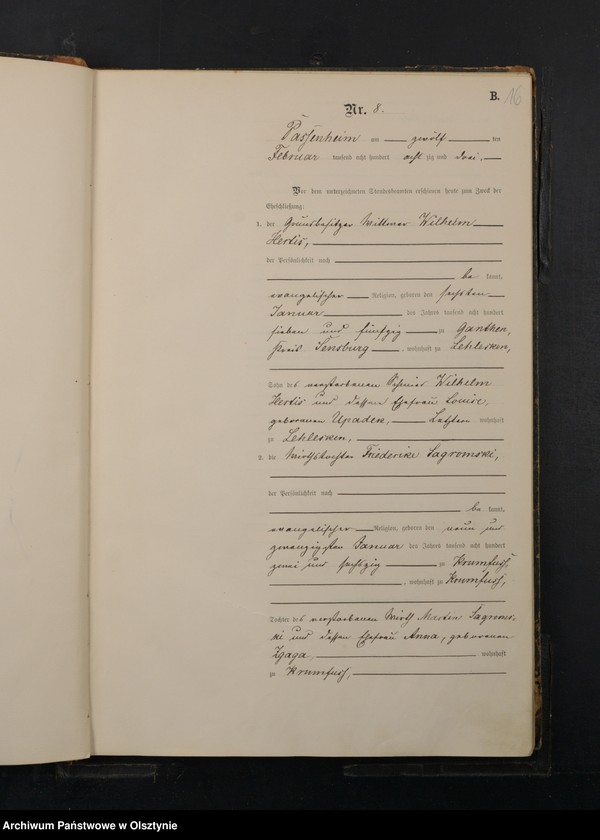 B. 16
Nr. 8.
Passenheim am zwölf ten
Februar tausend acht hundert acht zig und drei,
Vor dem unterzeichneten Standesbeamten erschienen heute zum Zweck der
Eheschließung:
1. der Grundbesitzer Wittwer Wilhelm
Hertis,
der Persönlichkeit nach
be kannt,
evangelischer Religion, geboren den sechsten
Januar des Jahres tausend acht hundert
sieben und fünfzig zu Ganthen,
Kreis Sensburg, wohnhaft zu Lehlesken,
Sohn des verstorbenen Wilhelm
Hertis und dessen Ehefrau Louise,
geborenen Upadek, Letztere wohnhaft
zu Lehlesken,
2. die Wirthstochter Friederike Sagromski,
der Persönlichkeit nach
be kannt,
evangelischer Religion, geboren den neun und
zwanzigsten Januar des Jahres tausend acht hundert
zwei und sechszig zu Krumfuß,
, wohnhaft zu Krumfuß,
Tochter des verstorbenen Wirth Martin Sagroms-
ki und dessen Ehefrau Anna, geborenen
Zgaga wohnhaft
zu Krumfuß,
Archiwum Państwowe w Olsztynie